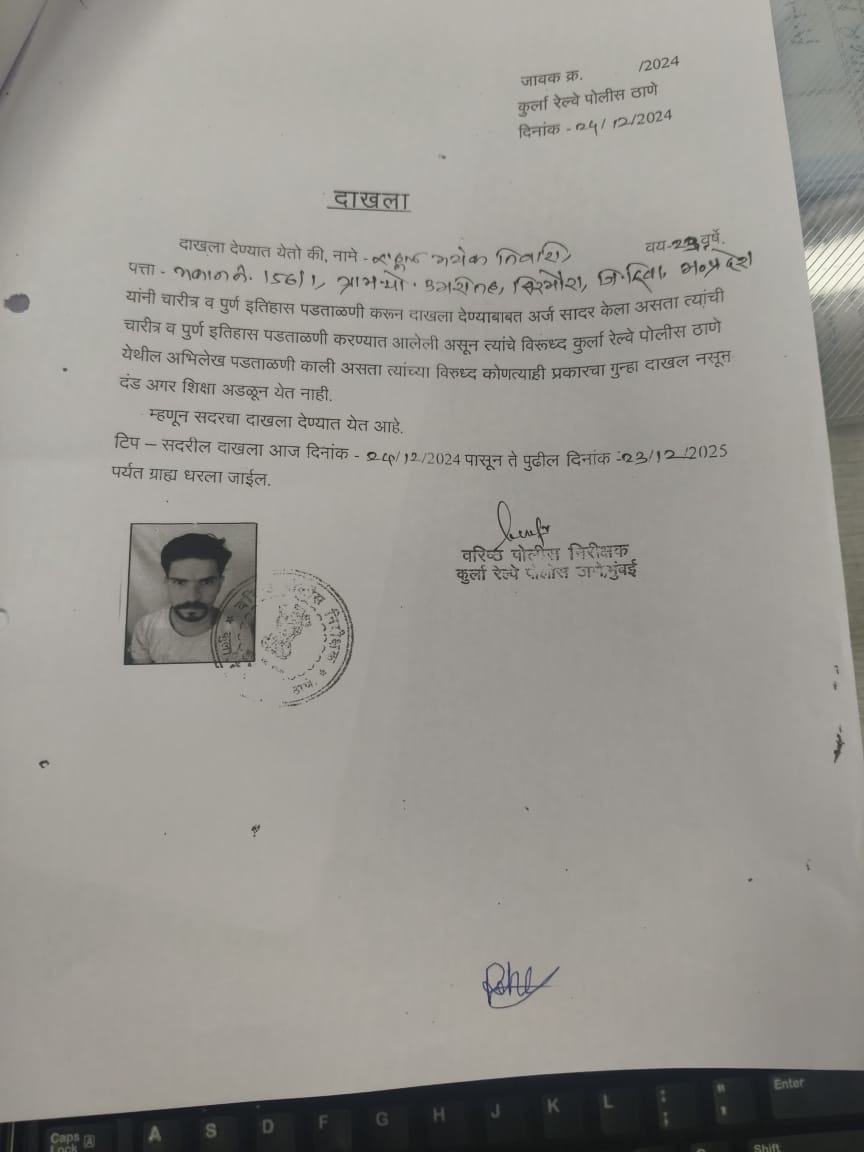 जावक क्र. /2024
कुर्ला रेल्वे पोलीस ठाणे
दिनांक - २५/12/2024
दाखला
दाखला देण्यात येतो की, नामे - तिवारी, वय-23 वर्षे.
पत्ता - मकान नं. 156/1, ग्राम पो. सिरमौर, जि. रिवा, म.प्रदेश
यांनी चारीत्र व पुर्ण इतिहास पडताळणी करून दाखला देण्याबाबत अर्ज सादर केला असता त्यांची
चारीत्र व पुर्ण इतिहास पडताळणी करण्यात आलेली असून त्यांचे विरूध्द कुर्ला रेल्वे पोलीस ठाणे
येथील अभिलेख पडताळणी काली असता त्यांच्या विरुध्द कोणत्याही प्रकारचा गुन्हा दाखल नसून
दंड अगर शिक्षा अडळून येत नाही.
म्हणून सदरचा दाखला देण्यात येत आहे.
टिप – सदरील दाखला आज दिनांक - २४/12/2024 पासून ते पुढील दिनांक :-23/12/2025
पर्यत ग्राह्य धरला जाईल.
वरिष्ठ पोलीस निरीक्षक
कुर्ला रेल्वे पोलीस ठाणे,मुंबई
निरीक्षक
Caps Lock A
A S D F G H J K L : ; " '
Enter
Shift